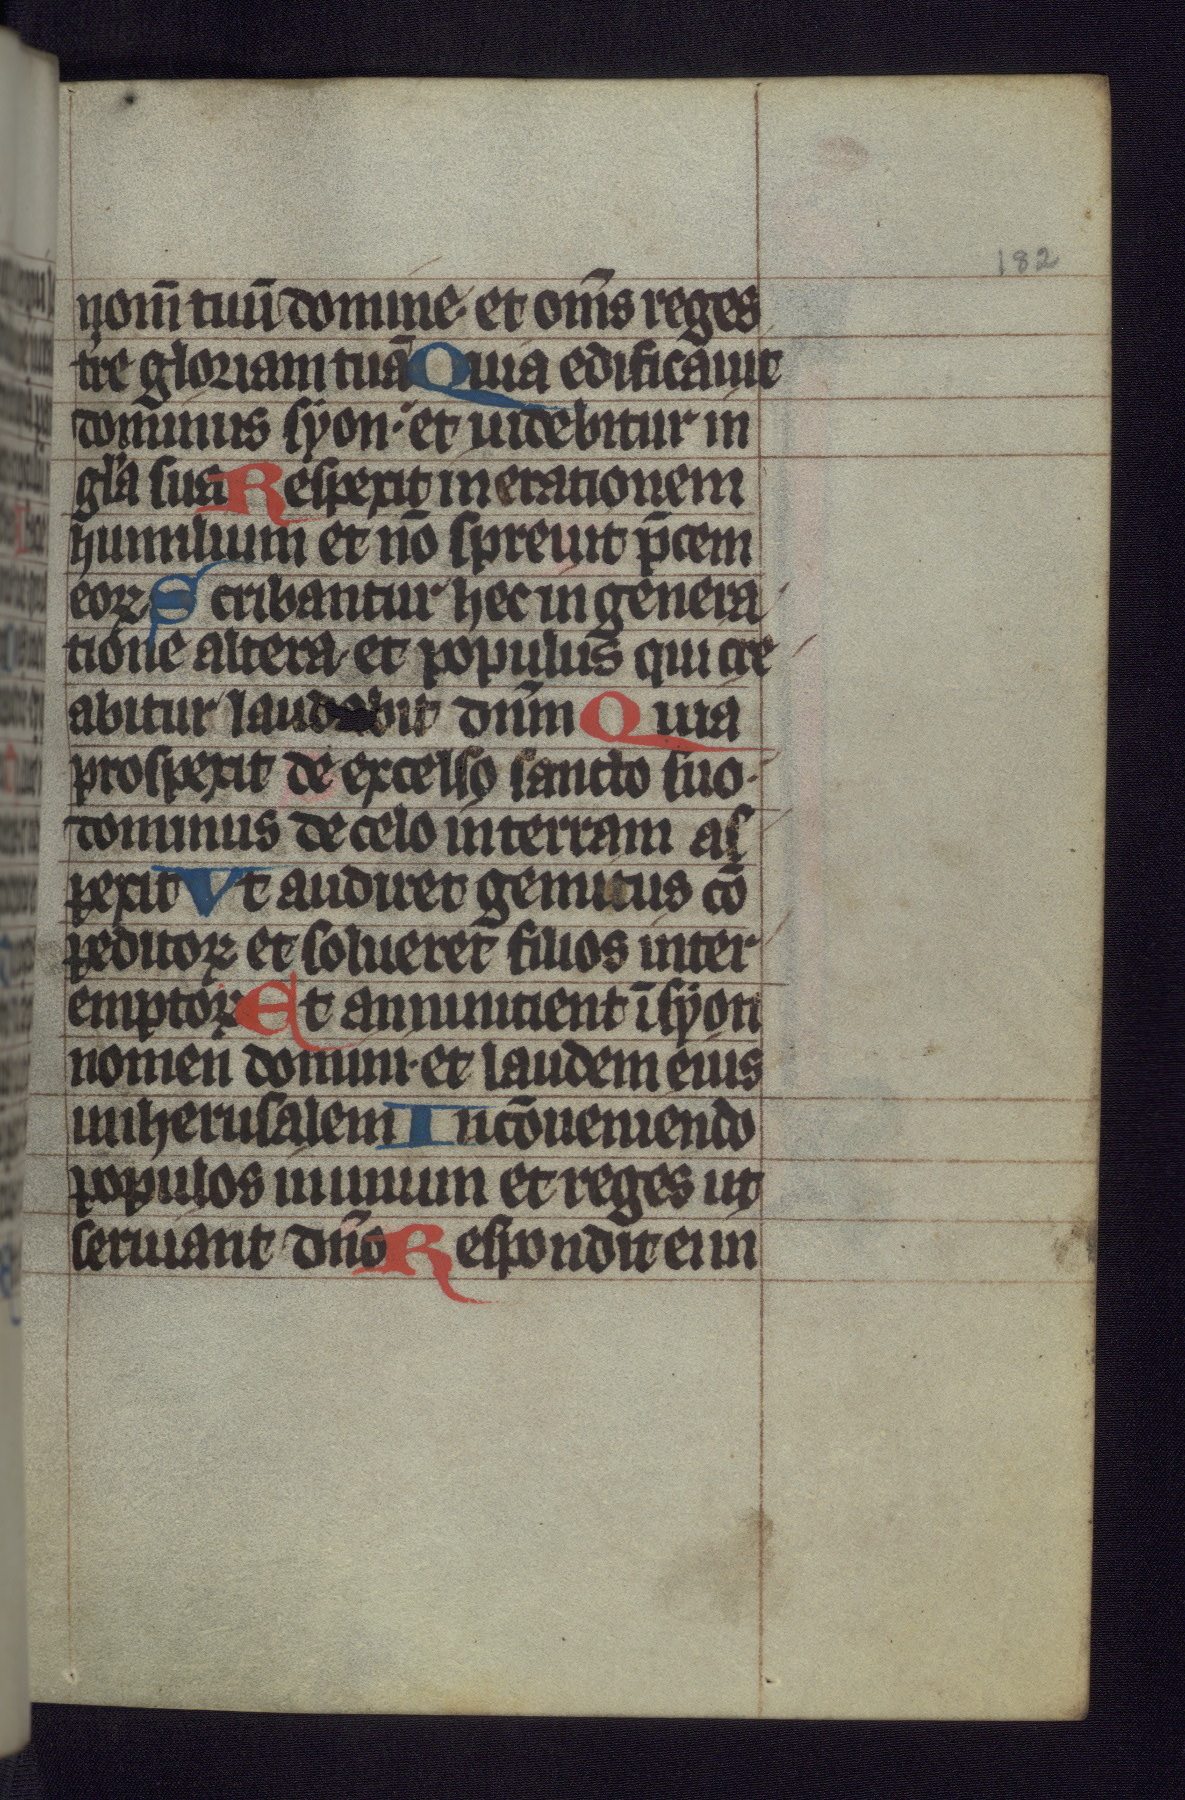 182
nom̄ tuū domine· et om̄s reges
tr̄e gloriam tuā Quia edificauit
dominus syon· et uidebitur in
gl̄a sua Respexit in orationem
humilium et nō spreuit p̄cem
eoꝝ Scribantur hec in genera
tione altera· et populus qui cre
abitur laudabit dn̄m Quia
prospexit de excelso sancto suo·
dominus de celo in terram as
pexit Vt audiret gemitus cō
peditoꝝ et solueret filios inter
emptoꝝ Et annuntient ī syon
nomen domini· et laudem eius
in iherusalem In cōueniendo
populos in unum et reges ut
seruiant dn̄o Respondit ei in